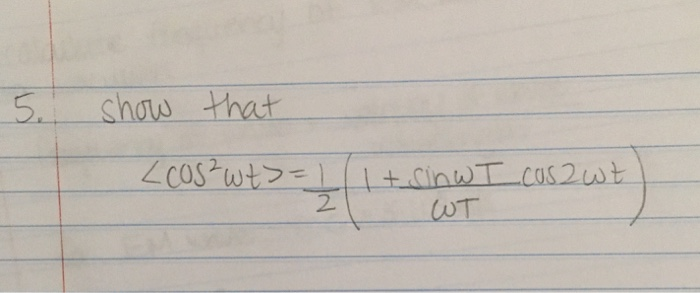 5. show that
<cos²ωt> = 1/2 (1 + sinωT/ωT cos2ωt)